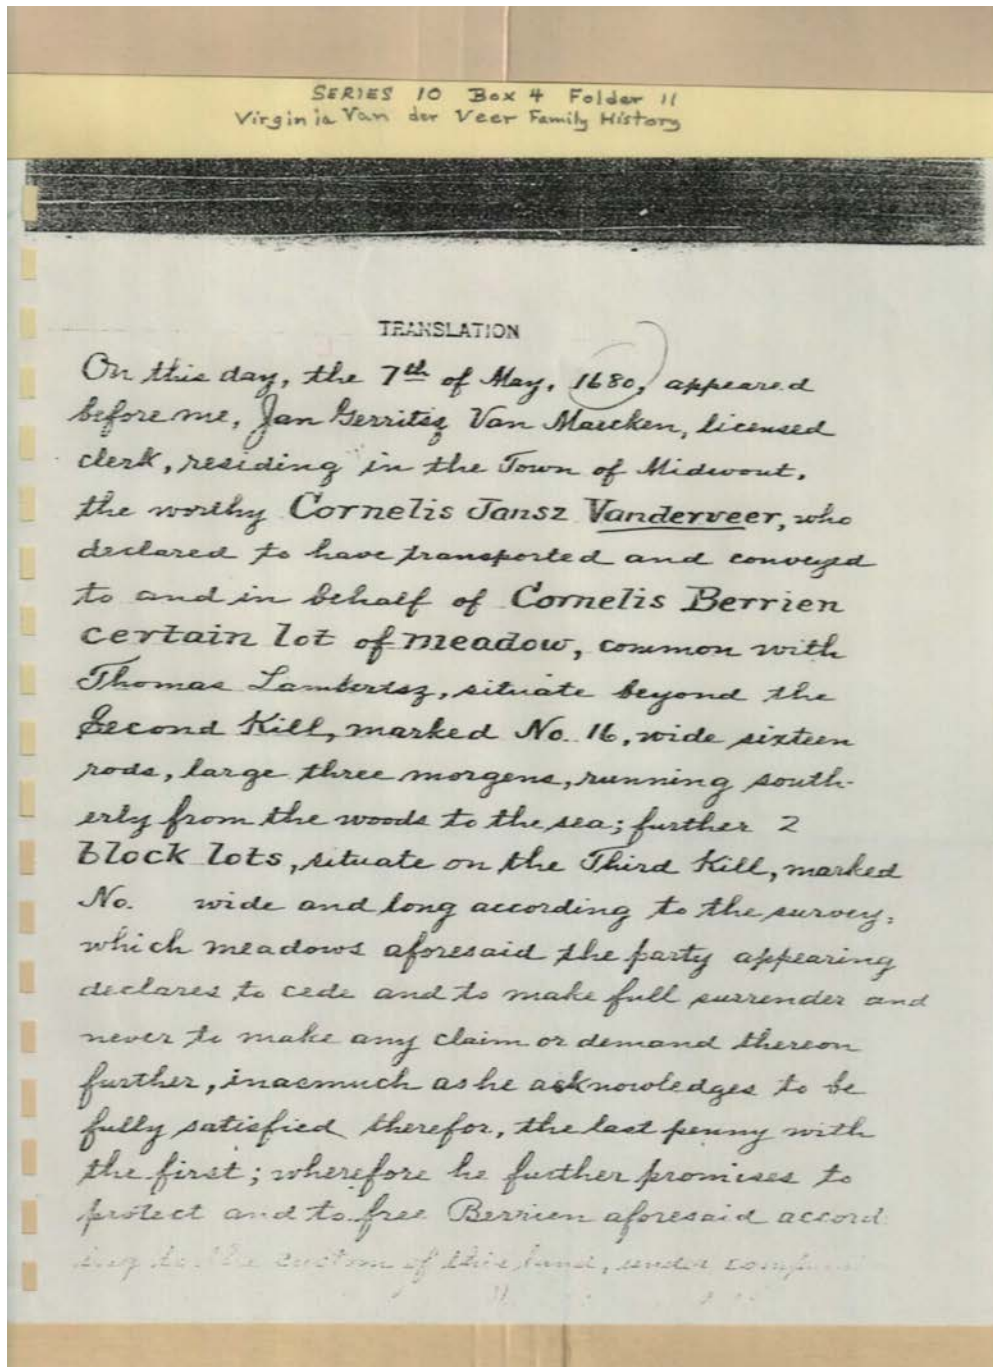 SERIES 10 Box 4 Folder 11
Virginia Van der Veer Family History
TRANSLATION
On this day, the 7th of May, 1680, appeared
before me, Jan Gerritsz Van Marcken, licensed
clerk, residing in the Town of Midwout,
the worthy Cornelis Jansz Vanderveer, who
declared to have transported and conveyed
to and in behalf of Cornelis Berrien
certain lot of meadow, common with
Thomas Lambertsz, situate beyond the
Second Kill, marked No. 16, wide sixteen
rods, large three morgens, running south-
erly from the woods to the sea; further 2
block lots, situate on the Third Kill, marked
No. wide and long according to the survey;
which meadows aforesaid the party appearing
declares to cede and to make full surrender and
never to make any claim or demand thereon
further, inasmuch as he acknowledges to be
fully satisfied therefor, the last penny with
the first; wherefore he further promises to
protect and to free Berrien aforesaid accord
ing to the custom of this land, under